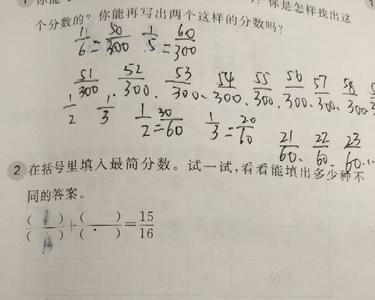 你是怎样找出这
个分数的？你能再写出两个这样的分数吗？
1/6=50/300 1/5=60/300
51/300 52/300 53/300 54/300 55/300 56/300 57/300 58
1/2 1/3 1/2=30/60 1/3=20/60 21/60 22/60 23/60
2 在括号里填入最简分数。试一试，看看能填出多少种不
同的答案。
( )/( )+( )/( )=15/16